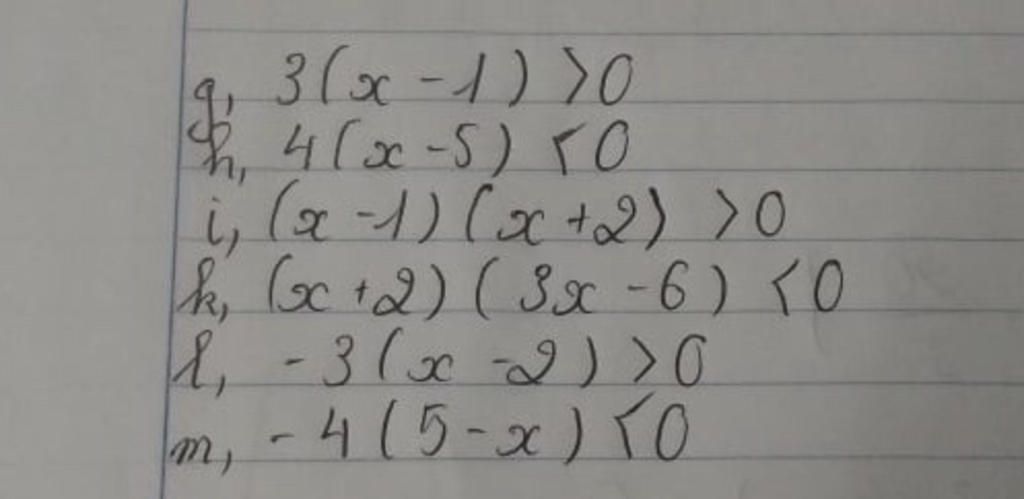 g, 3(x - 1) > 0
h, 4(x - 5) < 0
i, (x - 1)(x + 2) > 0
k, (x + 2)(3x - 6) < 0
l, - 3(x - 2) > 0
m, - 4(5 - x) < 0